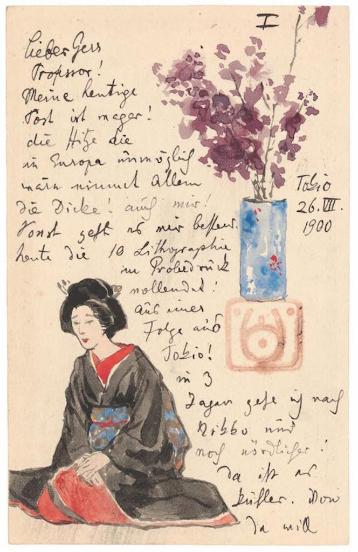 I
Lieber Herr
Professor!
Meine heutige
Post ist mager!
die Hitze die
in Europa unmöglich
wäre nimmt Allem
die Dicke! auch mir!
Sonst geht es mir besser.
heute die 10 Lithographie
im Probedruck
vollendet!
Aus einer
Folge aus
Tokio!
in 3
Tagen gehe ich nach
Nikko und
noch nördlicher!
Da ist es
kühler.
Da will
Tokio
26. VII.
1900